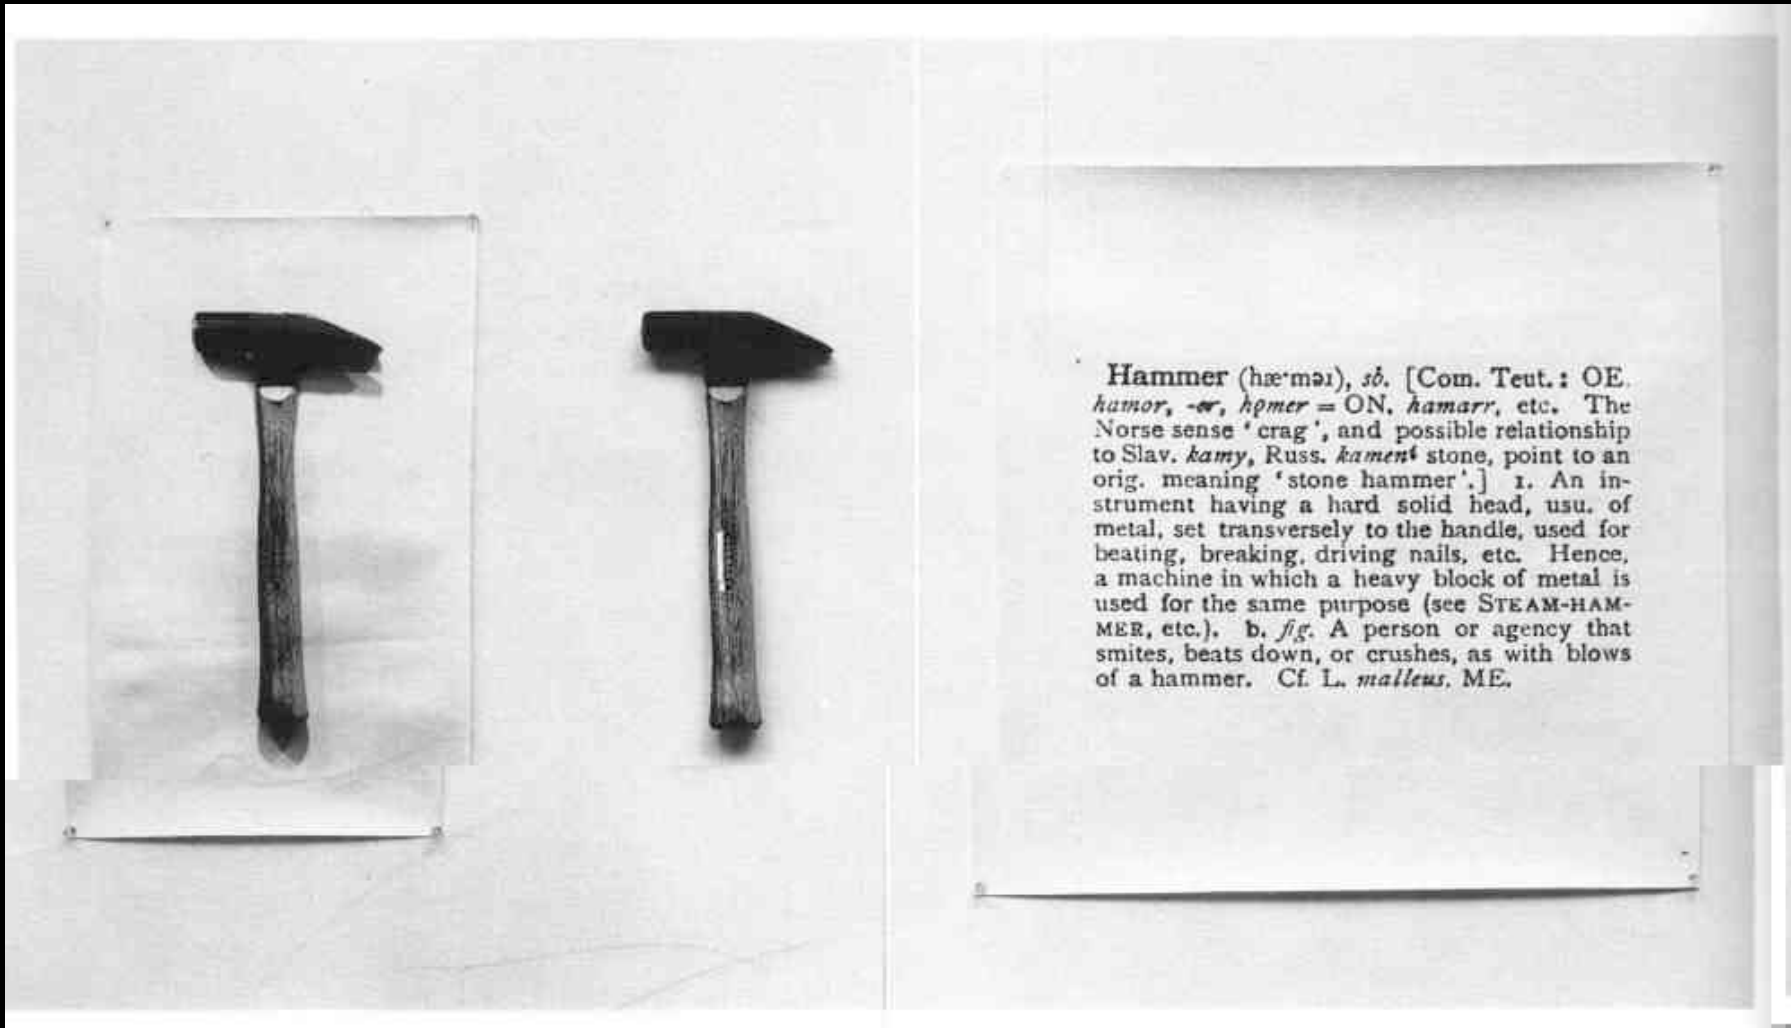 Hammer (hæ·məɹ), sb. [Com. Teut.: OE.
hamor, -er, họmer = ON. hamarr, etc. The
Norse sense ‘crag’, and possible relationship
to Slav. kamy, Russ. kamenĭ stone, point to an
orig. meaning ‘stone hammer’.] 1. An in-
strument having a hard solid head, usu. of
metal, set transversely to the handle, used for
beating, breaking, driving nails, etc. Hence,
a machine in which a heavy block of metal is
used for the same purpose (see STEAM-HAM-
MER, etc.). b. fig. A person or agency that
smites, beats down, or crushes, as with blows
of a hammer. Cf. L. malleus. ME.